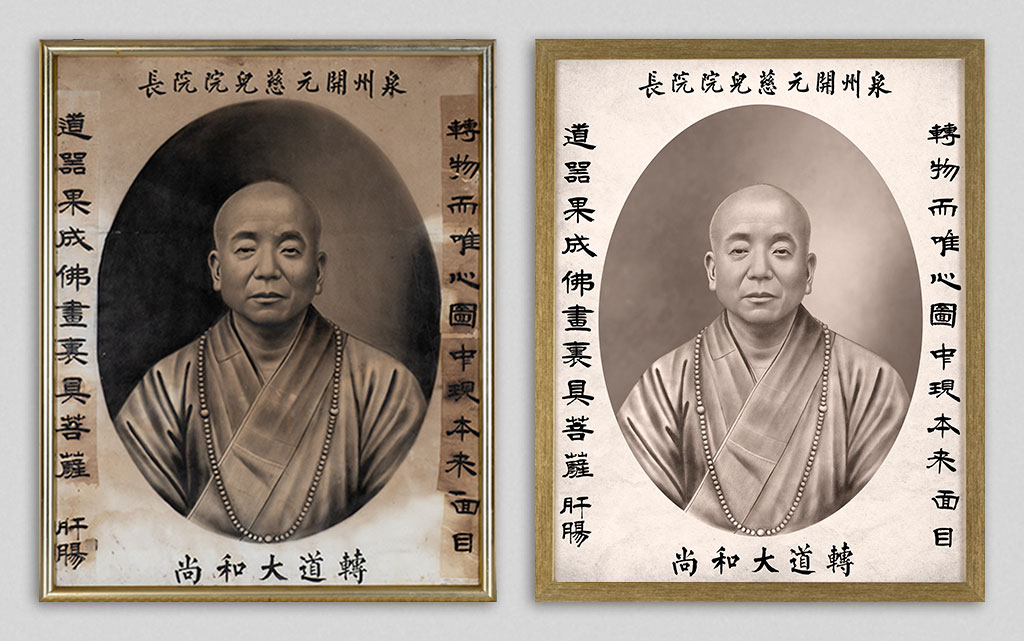 泉州開元慈兒院院長
轉物而唯心圖中現本来面目
道器果成佛畫裏具菩薩肝腸
轉道大和尚
泉州開元慈兒院院長
轉物而唯心圖中現本来面目
道器果成佛畫裏具菩薩肝腸
轉道大和尚